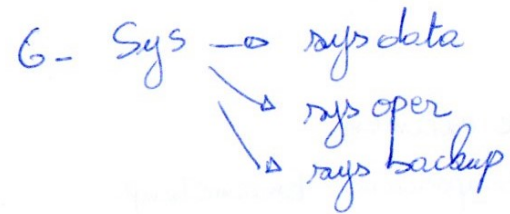 6- Sys → sys data
sys oper
sys backup